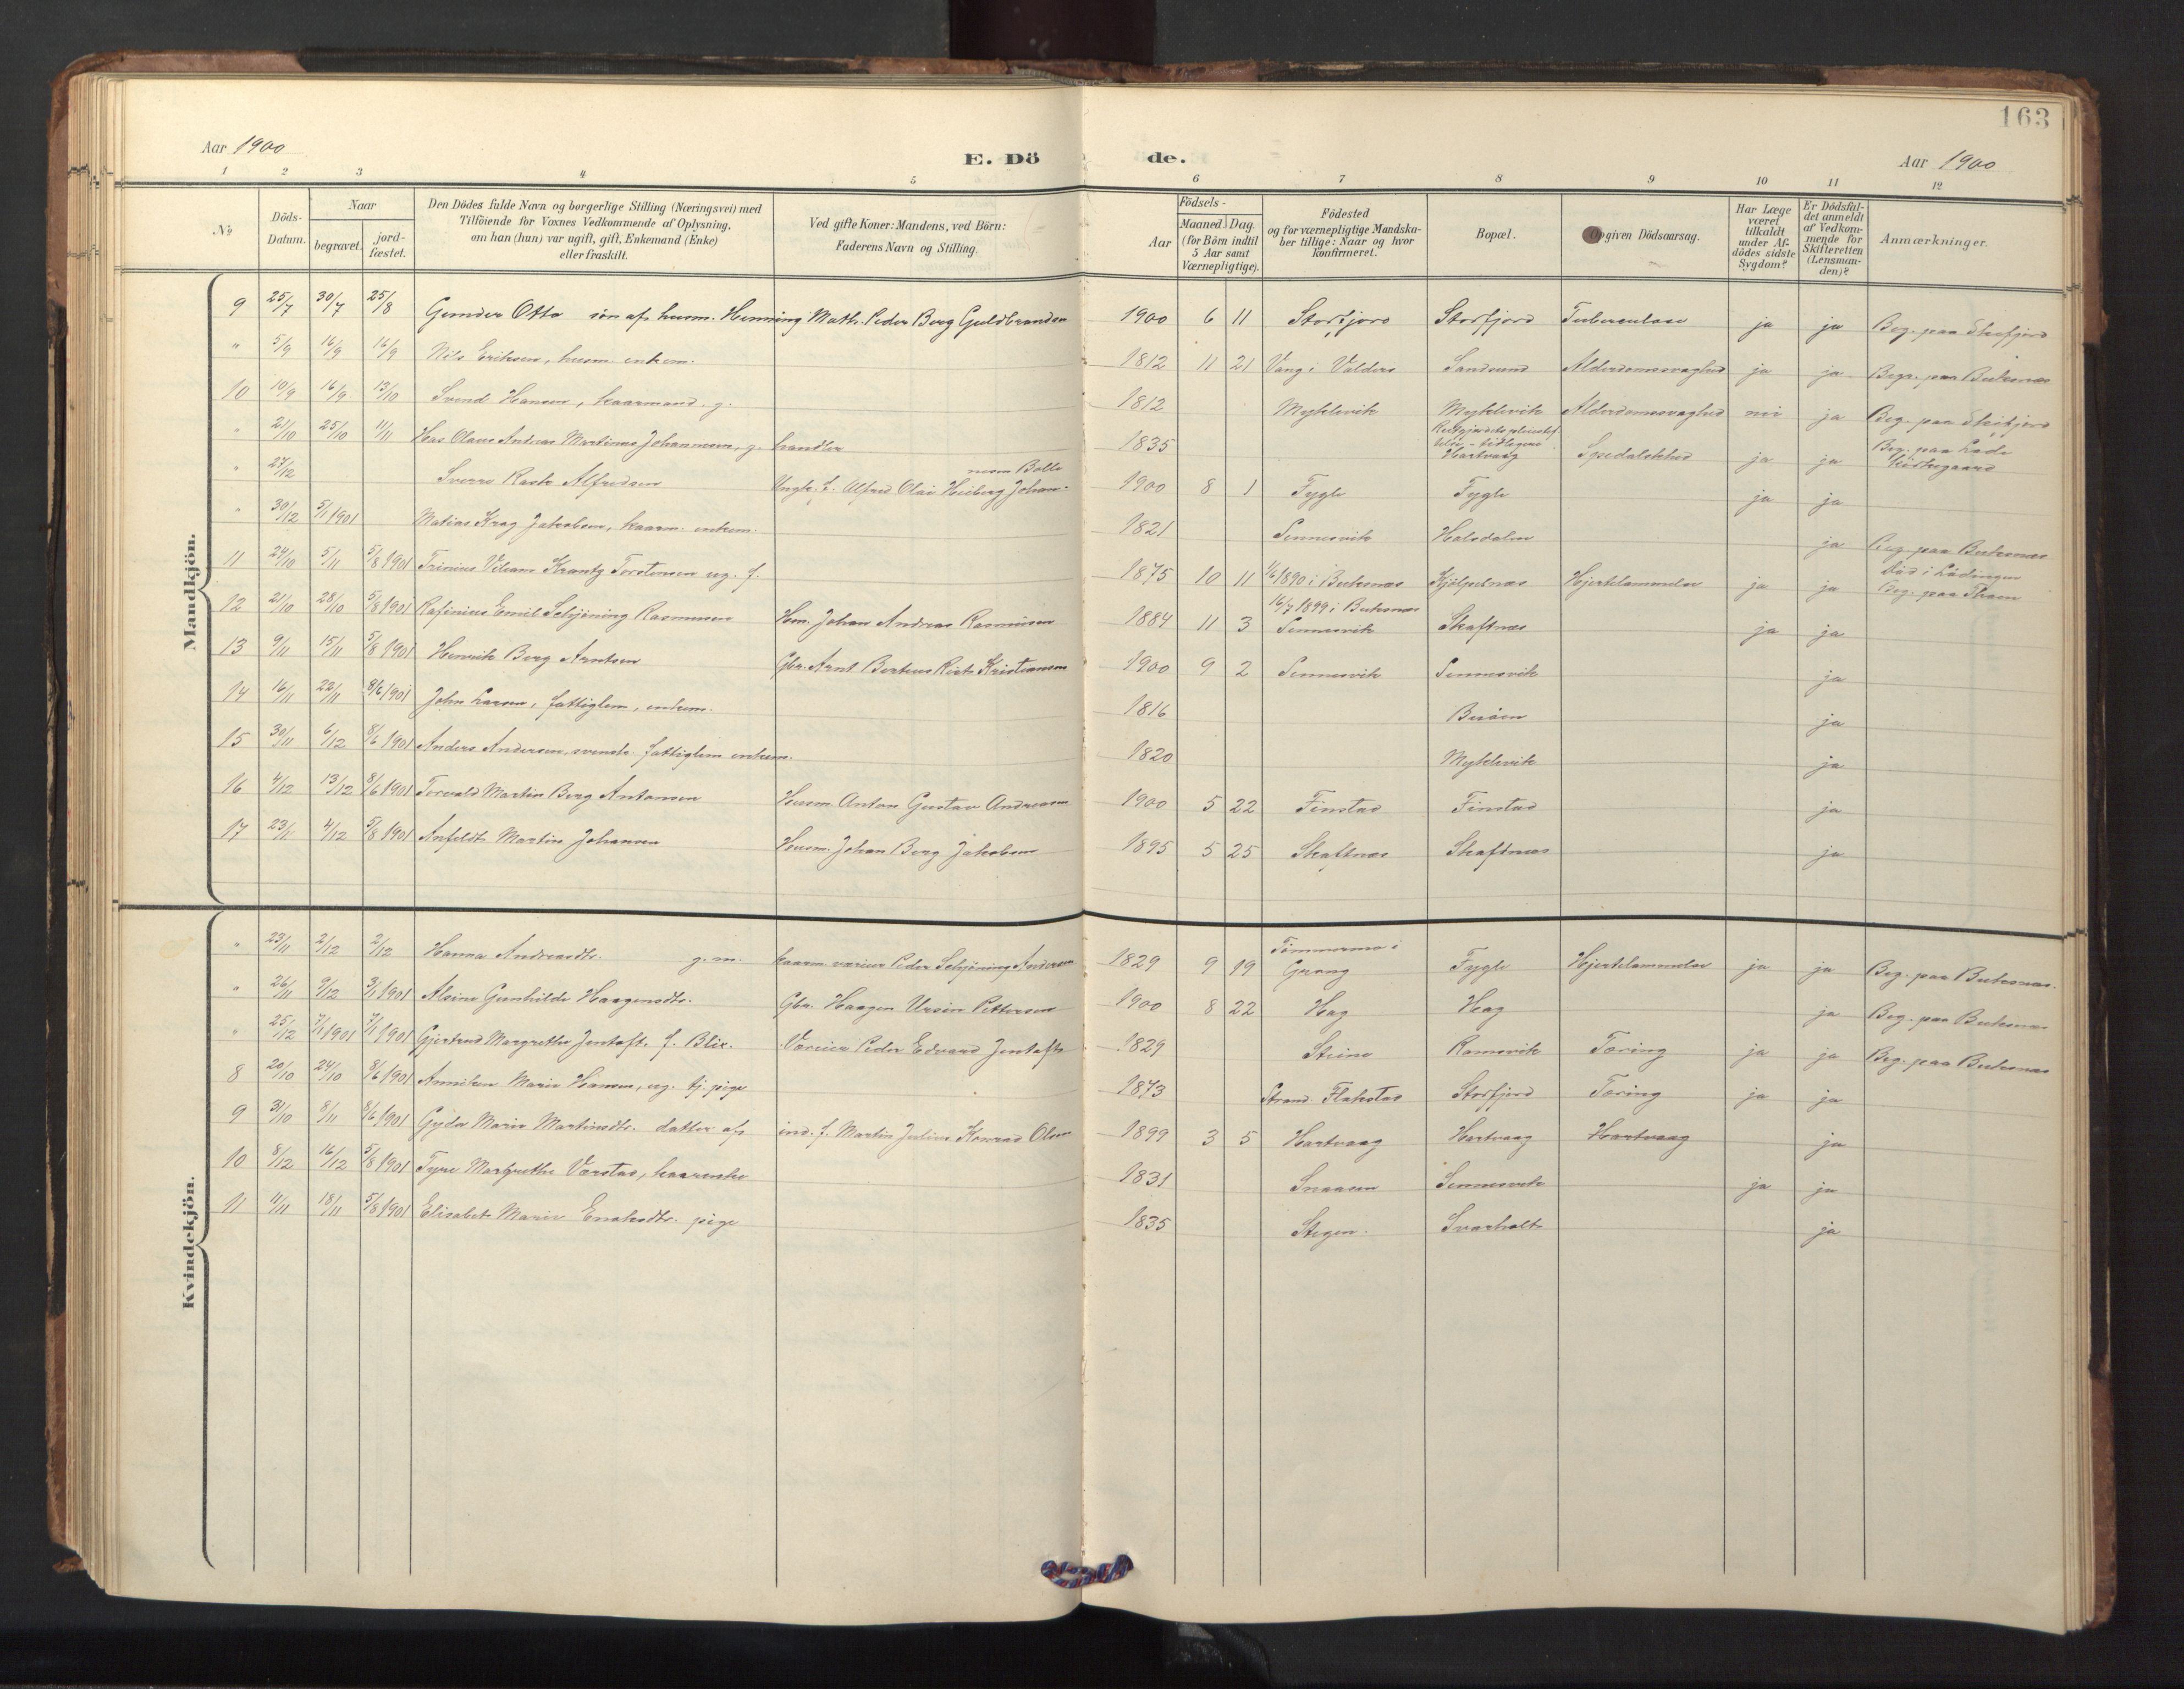 163
Aar 1900 E. Dö de. Aar 1900
1 2 3 4 5 6 7 8 9 10 11 12
No
Döds-Datum.
Naar
begravet. jord-fæstet.
Den Dödes fulde Navn og borgerlige Stilling (Næringsvei) med
Tilföiende for Voxnes Vedkommende af Oplysning,
om han (hun) var ugift, gift, Enkemand (Enke)
eller fraskilt.
Ved gifte Koner: Mandens, ved Börn:
Faderens Navn og Stilling.
Födsels-
Aar
Maaned. Dag.
(for Börn indtil
5 Aar samt
Værnepligtige).
Födested
og for værnepligtige Mandska-
ber tillige: Naar og hvor
konfirmeret.
Bopæl.
Opgiven Dödsaarsag.
Har Læge
været
tilkaldt
under Af-
dödes sidste
Sygdom?
Er Dödsfal-
det anmeldt
af Vedkom-
mende for
Skifteretten
(Lensman-
den)?
Anmærkninger.
Mandkjön.
9 25/7 30/7 25/8 Otto sön af husm. Henning Math. Peder Berg Guldbrandsen 1900 6 11 Storfjord Storfjord Tuberculose ja ja Beg. paa
" 5/9 16/9 16/9 Nils Eriksen, husm. enkem. 1812 11 21 Vang i Valders Sandsund Alderdomssvaghed ja ja Begr. paa Buksnæs
10 10/9 16/9 13/10 Svend Hansen, kaarmand. g. 1812 Myklevik Myklevik Alderdomssvaghed nei ja Beg. paa
" 21/10 25/10 11/11 Olaus Andreas Martinus Johannesen, g. handler 1835 Hartvaag Spedalskhed ja ja Beg. paa Lade kirkegaard
" 27/12 Sverre Rask Alfredsen Ungk. f. Alfred Olai Heiberg Johannesen Bolle 1900 8 1 Fygle Fygle ja ja
" 30/12 5/1 1901 Matias Krag Jakobsen, kaarm. enkem. 1821 Sennesvik Halsdalen ja Beg. paa Buksnæs
11 24/10 5/11 5/8 1901 Trinius Viliam Krantz Torstensen ug. f. 1875 10 11 1/6 1890 i Buksnæs Kjölpelnæs Hjertelammelse ja ja Död i Lödingen Beg. paa
12 21/10 28/10 5/8 1901 Rafinius Emil Schjöning Rasmussen Hm. Johan Andreas Rasmussen 1884 11 3 16/7 1899 i Buksnæs Sennesvik Skaftnæs ja ja
13 9/11 15/11 5/8 1901 Henrik Berg Arntsen Gbr. Arnt Berteus Rist Kristiansen 1900 9 2 Sennesvik Sennesvik ja
14 16/11 22/11 8/6 1901 John Larsen, fattiglem, enkem. 1816 ja
15 30/11 6/12 8/6 1901 Anders Andersen, svensk fattiglem enkem. 1820 Myklevik ja
16 4/12 13/12 8/6 1901 Torvald Martin Berg Antonsen Husm. Anton Gustav Andreasen 1900 5 22 Finstad Finstad ja
17 23/11 4/12 5/8 1901 Anfeldt Martin Johansen Husm. Johan Berg Jakobsen 1895 5 25 Skaftnæs Skaftnæs ja
Kvindekjön.
" 23/11 2/12 2/12 Hanna Andreasdtr. g. m. kaarm. værier Peder Schjöning Andersen 1829 9 19 i Grong Fygle Hjertelammelse ja ja Beg. paa Buksnæs.
" 26/11 9/12 3/1 1901 Alsine Gunhilde Haagensdtr. Gbr. Haagen Ursin Pettersen 1900 8 22 Hag Hag ja Beg. paa Buksnæs
" 25/12 7/1 1901 7/1 1901 Gjertrud Margrethe Jentoft. f. Blix. Væreier Peder Edvard Jentoft 1829 Steine Ramsvik Tæring ja ja Beg. paa Buksnæs
8 20/10 24/10 8/6 1901 Anniken Marie Hansen, ug. tj. pige 1873 Strand. Flakstad Storfjord Tæring ja ja
9 31/10 8/11 8/6 1901 Gyda Marie Martinsdtr. datter af ind. f. Martin Julius Konrad Olsen 1899 3 5 Hartvaag Hartvaag Hartvaag ja
10 8/12 16/12 5/8 1901 Tyre Margrethe Værstad, kaarenke 1831 Snaasen Sennesvik ja ja
11 11/11 18/11 5/8 1901 Elisabet Marie Enoksdtr. pige 1835 Stegen. Svarholt ja